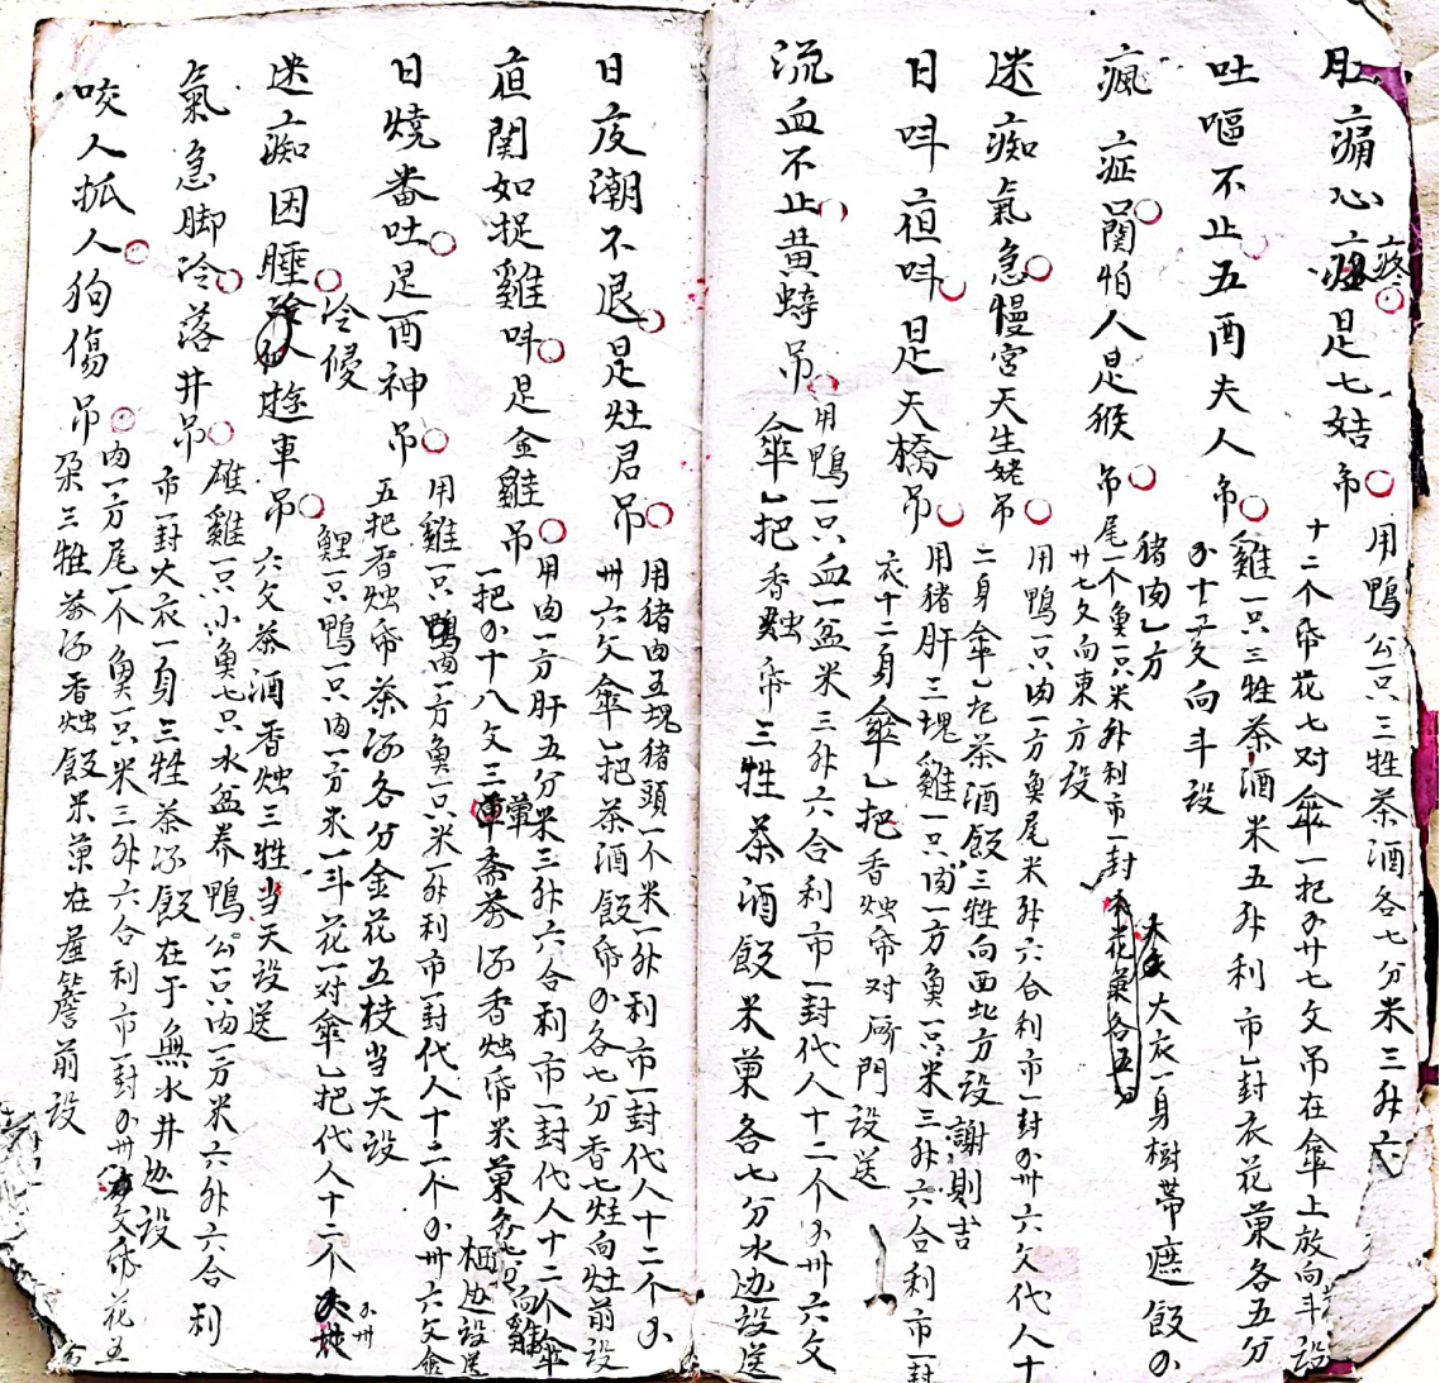 肚痛心疼是七姑吊
用鴨公一只三牲茶酒各七分米三升六
十二个帋花七对傘一把 廿七文吊在傘上放向斗設
吐嘔不止五酉夫人吊
雞一只三牲茶酒米五升利市乚封衣花菓各五分
十二文向斗設
瘋症關怕人是猴吊
猪肉乚方
尾一个魚一只米升利市一封
大衣一身樹帶遮飯
廿七文向東方設
迷痴氣急慢宮天生姥吊
用鴨一只肉一方魚尾米升六合利市一封 卅六文代人十
二身傘乚把茶酒飯三牲向西北方設 謝則吉
日呌夜呌是天橋吊
用猪肝三塊雞一只肉一方魚一只米三升六合利市一封
衣十二身傘乚把香烛帋对 門設送
流血不止黄蜞吊
用鴨一只血一盆米三升六合利市一封代人十二个 卅六文
傘乚把香烛帋三牲茶酒飯米菓各七分水边設送
日夜潮不退是灶君吊
用猪肉五塊猪頭一个米一升利市一封代人十二个
卅六文傘乚把茶酒飯帋 各七分香七炷向灶前設
夜関如捉雞呌是金雞吊
用肉一方肝五分米三升六合利市一封代人十二个傘
一把 十八文三葷斎茶 香烛帋米菓 向雞栖边設送
日燒番吐是酉神吊
用雞一只鴨肉一方魚一只米一升利市一封代人十二个 卅六文
五把香烛帋茶 各分金花五枝当天設
迷痴因腄 冷慢 車吊
鯉一只鴨一只肉一方米一斗花一对傘乚把代人十二个 卅
六文茶酒香烛三牲当天設送
氣急脚冷落井吊
雄雞一只小魚七只水盆养鴨公一只肉一方米六升六合利
市一封大衣一身三牲茶 飯在于無水井边設
咬人抓人狗傷吊
肉一方尾一个魚一只米三升六合利市一封 卅 文帋花五
朵三牲茶 香烛飯米菓在屋簷前設